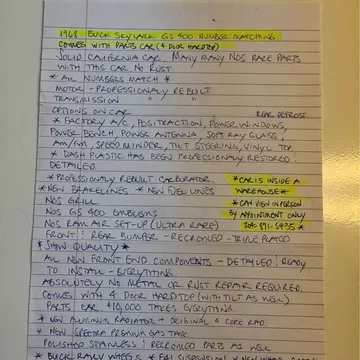 1968 BUICK SKYLARK GS 400 NUMBER MATCHING
COMES WITH PARTS CAR (4 DOOR HARDTOP)
SOLID CALIFORNIA CAR. MANY MANY NOS RARE PARTS
WITH THIS CAR NO RUST
* ALL NUMBERS MATCH *
MOTOR - PROFESSIONALLY REBUILT
TRANSMISSION " "
OPTIONS ON CAR REAR DEFROST
* FACTORY A/C, POSITRACTION, POWER WINDOWS,
POWER BENCH, POWER ANTENNA, SOFT RAY GLASS,
AM/FM, SPEED MINDER, TILT STEERING, VINYL TOP
* DASH PLASTIC HAS BEEN PROFESSIONALLY RESTORED!
DETAILED.
* PROFESSIONALLY REBUILT CARBURATOR *CAR IS INSIDE A
* NEW BRAKELINES * NEW FUEL LINES WAREHOUSE*
NOS GRILL *CAN VIEW IN PERSON
NOS GS 400 EMBLEMS BY APPOINTMENT ONLY
NOS RAM AIR SET-UP (ULTRA RARE)
FRONT! REAR BUMPER - RECHROMED - TRIPLE PLATED
* SHOW QUALITY *
ALL NEW FRONT END COMPONENTS - DETAILED! READY
TO INSTALL - EVERYTHING.
ABSOLUTELY NO METAL OR RUST REPAIR REQUIRED.
COMES WITH 4 DOOR HARDTOP (WITH TILT AS WELL)
PARTS CAR. $10,000 TAKES EVERYTHING.
* NEW ALUMINUM RADIATOR + ORIGINAL 4 CORE RAD
* NEW SPECTRA PREMIUM GAS TANK
POLISHED STAINLESS! RECHROMED PARTS AS WELL
* BUICK RALLY WHEELS * SUSPENSION * NEW